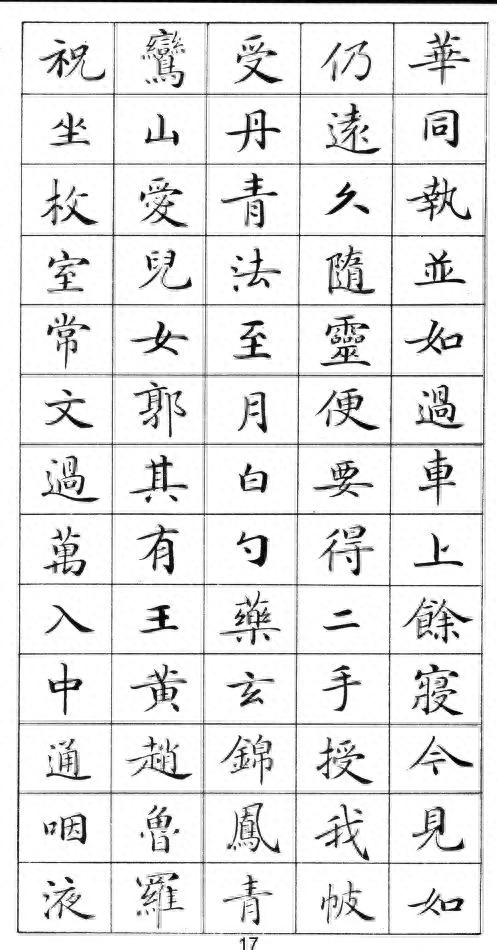 華同執並如過車上餘寢今見如
仍遠久隨靈便要得二手授我帔
受丹青法至月白勺藥玄錦鳳青
鸞山愛兒女郭其有王黃趙魯羅
祝坐枚室常文過萬入中通咽液
17